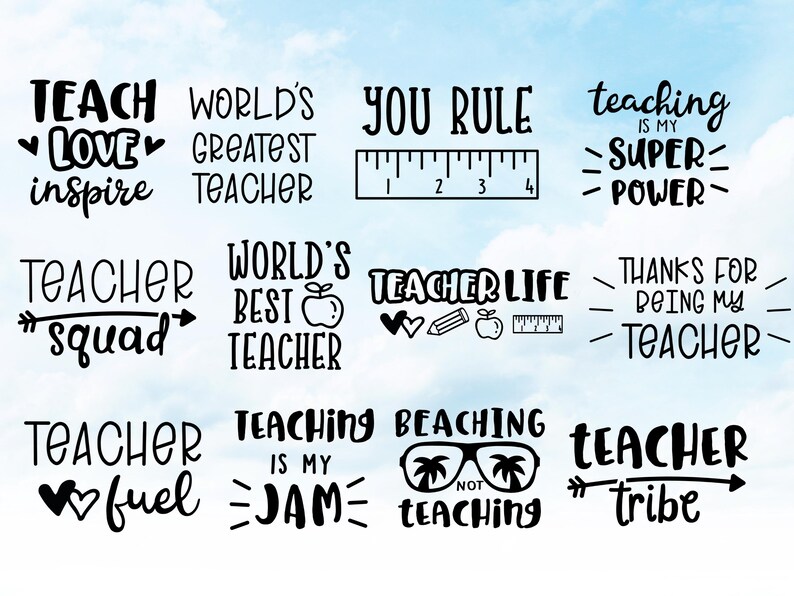 TEACH
LOVE
inspire
WORLD'S
GREATEST
TEACHER
YOU RULE
1 2 3 4
teaching
IS MY
SUPER
POWER
TEACHER
squad
WORLD'S
BEST
TEACHER
TEACHER LIFE
1 2 3 4
THANKS FOR
BEING MY
TEACHER
TEACHER
fuel
TEACHING
IS MY
JAM
BEACHING
NOT
teaching
TEACHER
tribe